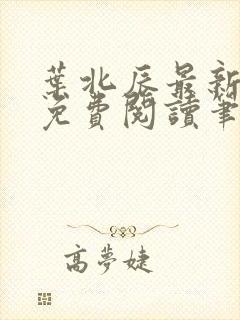 葉北辰最新
免費閱讀筆
高夢婕